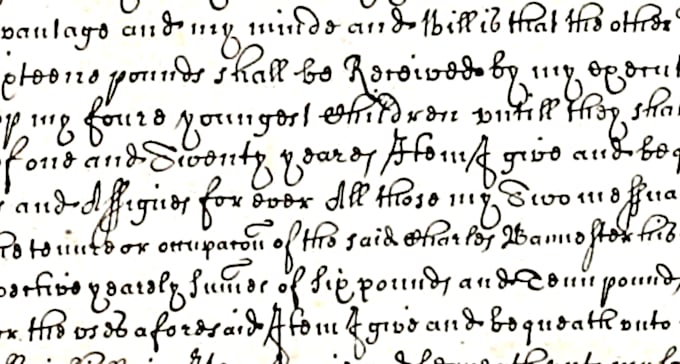 vantage and my minde and Will is that the other
ixteene pounds shall be Received by my execut
p my foure youngest Children untill they shal
f one and Twenty yeares Item I give and beq
s and Assignes for ever All those my Two messua
he tenure or occupacon of the said Charles Bannester his
pective yearely summes of six pounds and Tenn pounds
or the uses aforesaid Item I give and bequeath unto